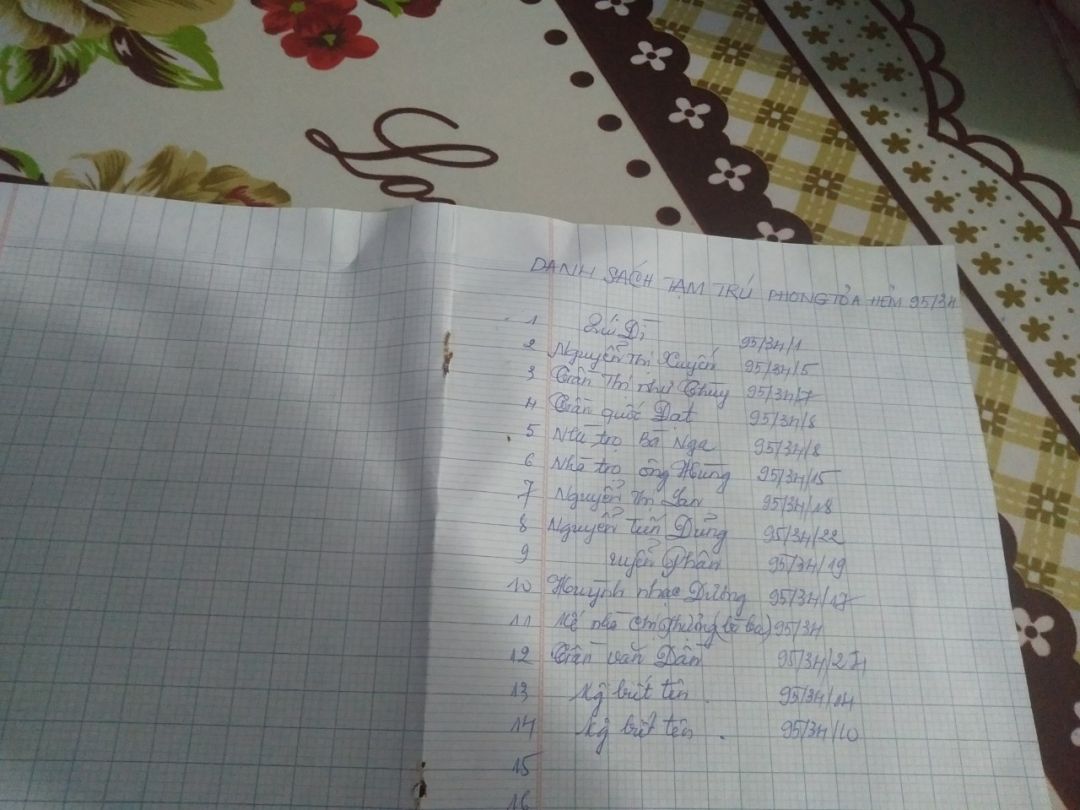 DANH SÁCH TẠM TRÚ PHONG TỎA HẺM 95/34
1 Dì 95/34/1
2 Nguyễn Thị Xuyến 95/34/5
3 Trần Thị như Thùy 95/34/7
4 Trần quốc Đạt 95/34/6
5 Nhà trọ Bà Nga 95/34/8
6 Nhà trọ ông Hùng 95/34/15
7 Nguyễn Thị Lan 95/34/18
8 Nguyễn tiến Dũng 95/34/22
9 Phấn 95/34/19
10 Huỳnh nhạc Dương 95/34/17
11 nhà chị 95/34
12 Trần văn Dần 95/34/24
13 kg biết tên 95/34/14
14 kg biết tên. 95/34/10
15
16